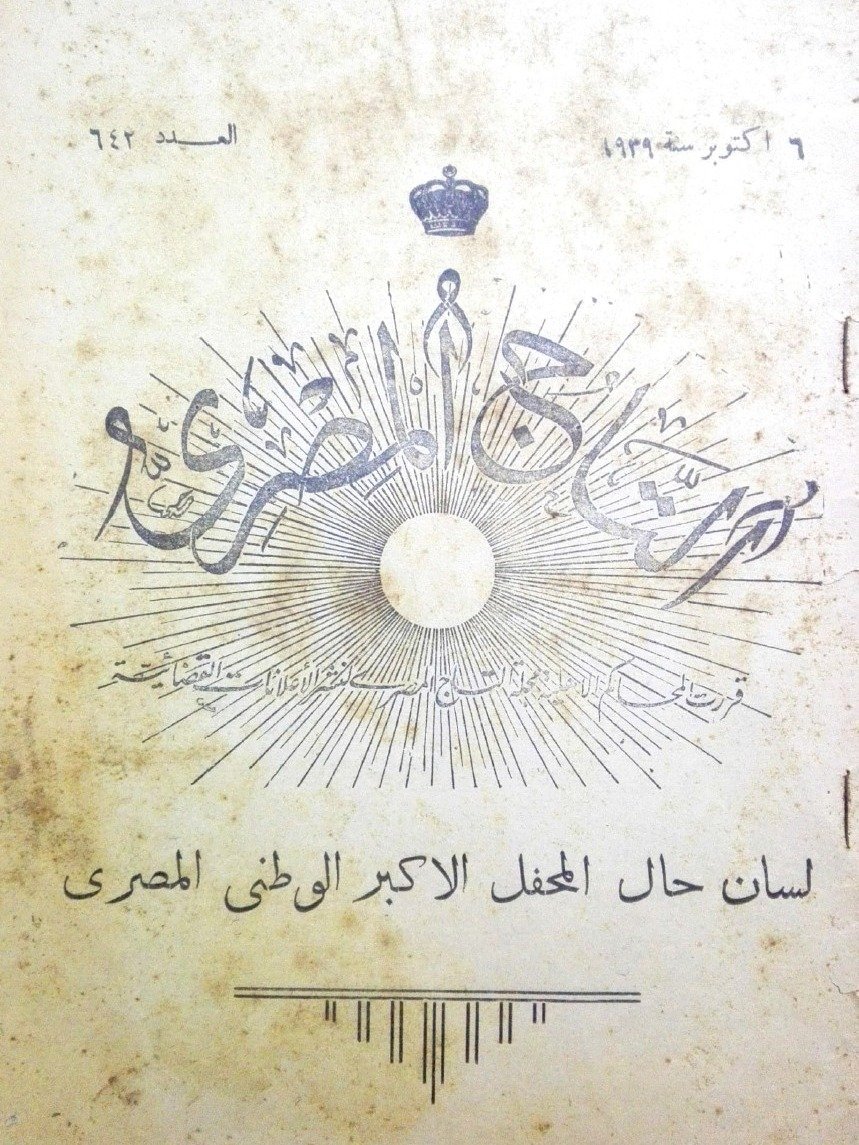 ٦ اكتوبر سنة ١٩٣٩
العدد ٦٤٢
التاج المصرى
قررت المحاكم الاهلية مجلة التاج المصرى لنشر الأعلانات القضائية
لسان حال المحفل الاكبر الوطنى المصرى